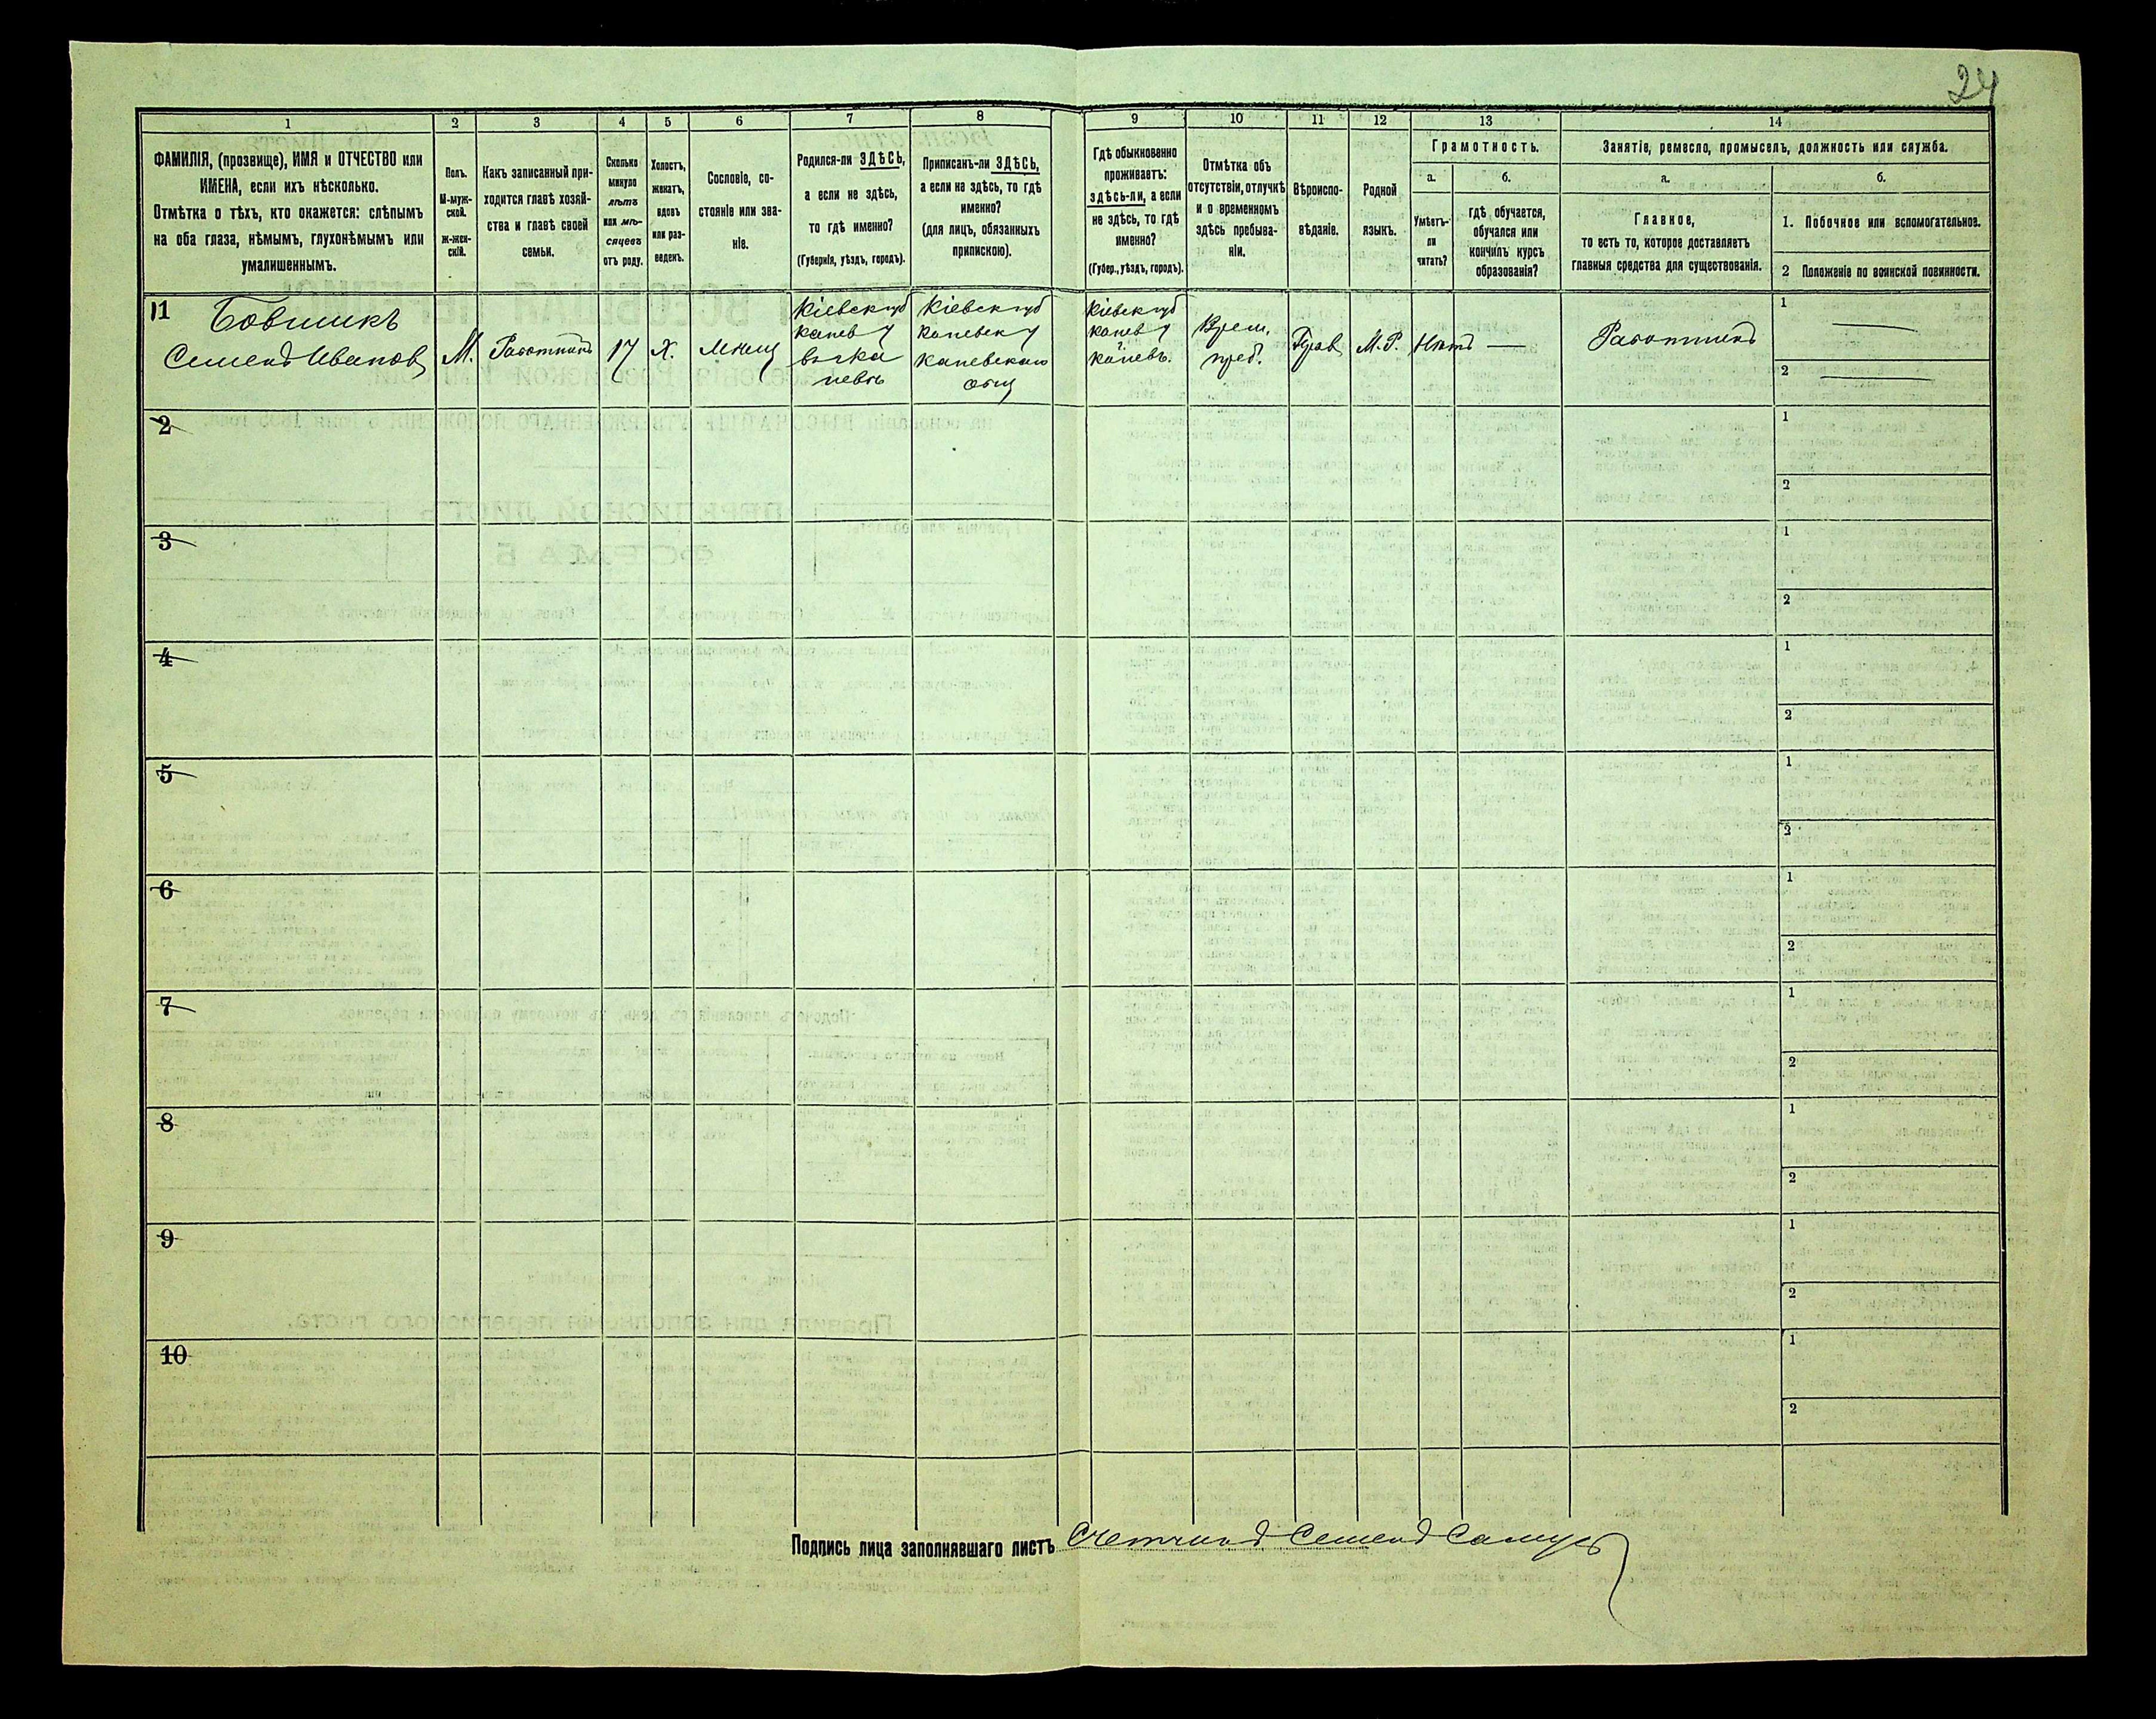 24
1
2
3
4
5
6
7
8
9
10
11
12
13
14
ФАМИЛІЯ, (прозвище), ИМЯ и ОТЧЕСТВО или
ИМЕНА, если ихъ нѣсколько.
Отмѣтка о тѣхъ, кто окажется: слѣпымъ
на оба глаза, нѣмымъ, глухонѣмымъ или
умалишеннымъ.
Полъ.
М-муж-
ской.
Ж-жен-
скій.
Какъ записанный при-
ходится главѣ хозяй-
ства и главѣ своей
семьи.
Сколько
минуло
лѣтъ
или мѣ-
сяцевъ
отъ роду.
Холостъ,
женатъ,
вдовъ
или раз-
веденъ.
Сословіе, со-
стояніе или зва-
ніе.
Родился-ли ЗДѢСЬ,
а если не здѣсь,
то гдѣ именно?
(Губернія, уѣздъ, городъ).
Приписанъ-ли ЗДѢСЬ,
а если не здѣсь, то гдѣ
именно?
(для лицъ, обязанныхъ
припискою).
Гдѣ обыкновенно
проживаетъ:
здѣсь-ли, а если
не здѣсь, то гдѣ
именно?
(Губер., уѣздъ, городъ).
Отмѣтка объ
отсутствіи, отлучкѣ
и о временномъ
здѣсь пребыва-
ніи.
Вѣроиспо-
вѣданіе.
Родной
языкъ.
Грамотность.
а.
б.
Умѣетъ-
ли
читать?
гдѣ обучается,
обучался или
кончилъ курсъ
образованія?
Занятіе, ремесло, промыселъ, должность или служба.
а.
б.
Главное,
то есть то, которое доставляетъ
главныя средства для существованія.
1. Побочное или вспомогательное.
2 Положеніе по воинской повинности.
11
Семенъ Иванов
М.
Работникъ
17
Х.
мѣщ
Кіевск губ
канев у
в г Ка
невѣ
Кіевск губ
Каневск у
Каневскаго
общ
Кіевск губ
канев у
г. Каневъ.
Врем.
преб.
Прав
М.Р.
Нѣтъ
—
Работникъ
1
—
2
—
2
1
2
3
1
2
4
1
2
5
1
2
6
1
2
7
1
2
8
1
2
9
1
2
10
1
2
Подпись лица заполнявшаго листъ Счетчикъ Семенъ